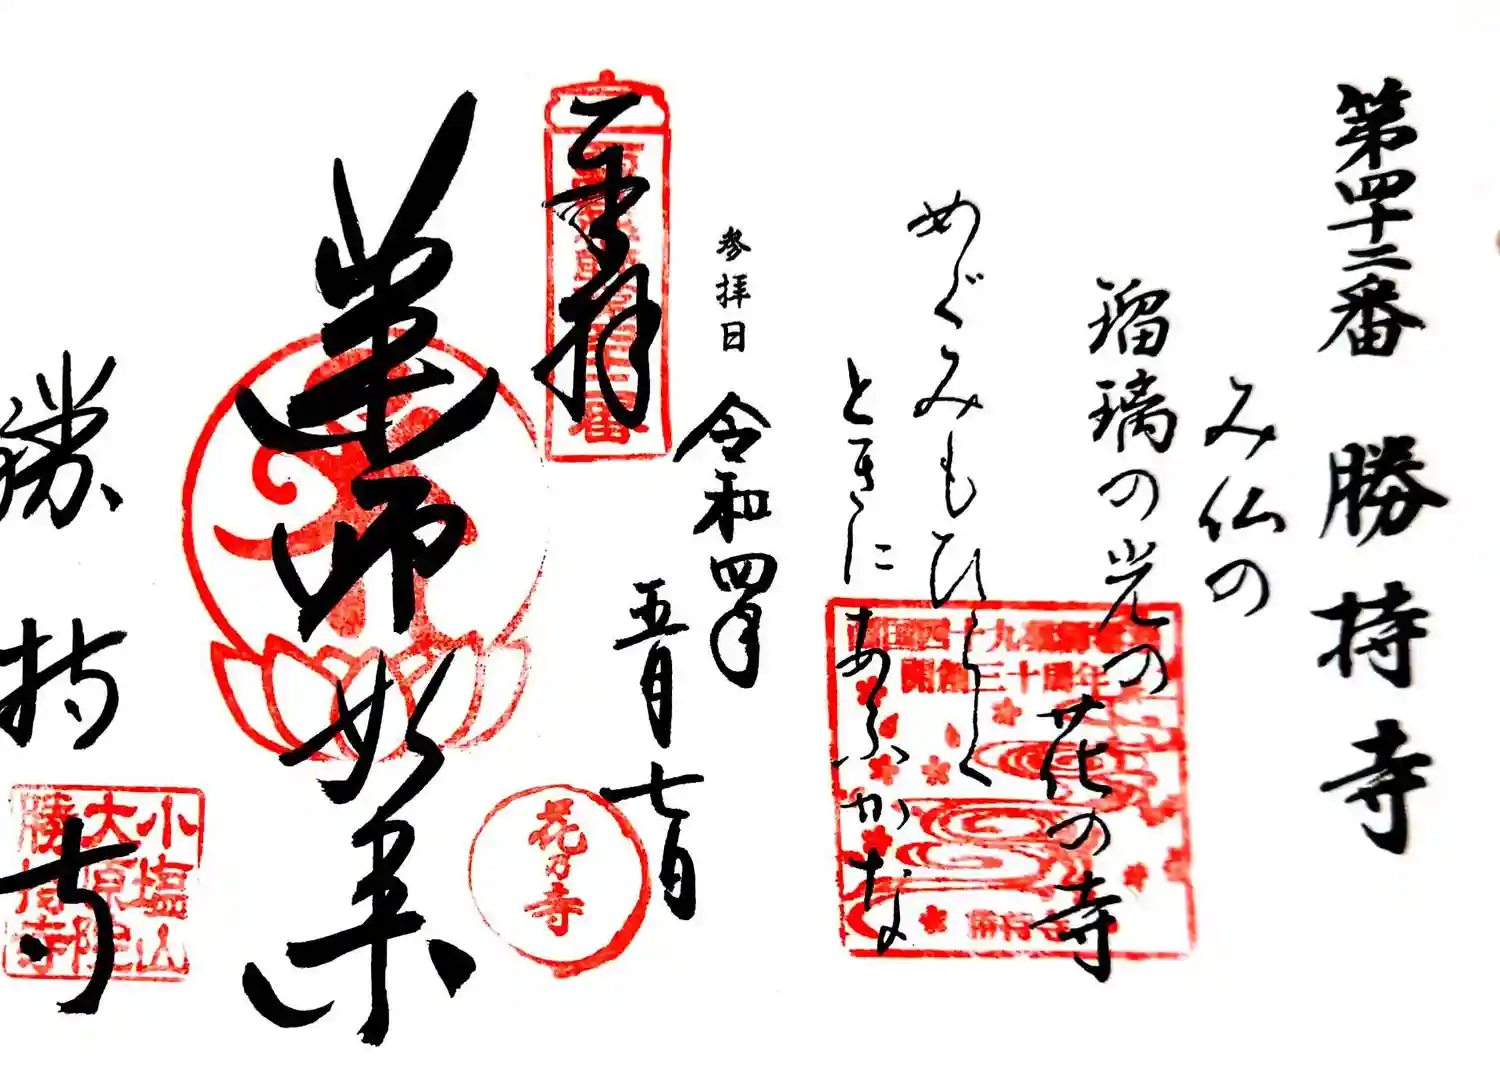 第四十二番 勝持寺
み仏の
瑠璃の光の花の寺
めぐみもひらく
ときにあふかな
西国四十九薬師霊場
開創三十周年
勝持寺
参拝日 令和四年
五月七日
奉拝
西国薬師第四十二番
薬師如来
花乃寺
勝持寺
小塩山
大原院
勝持寺